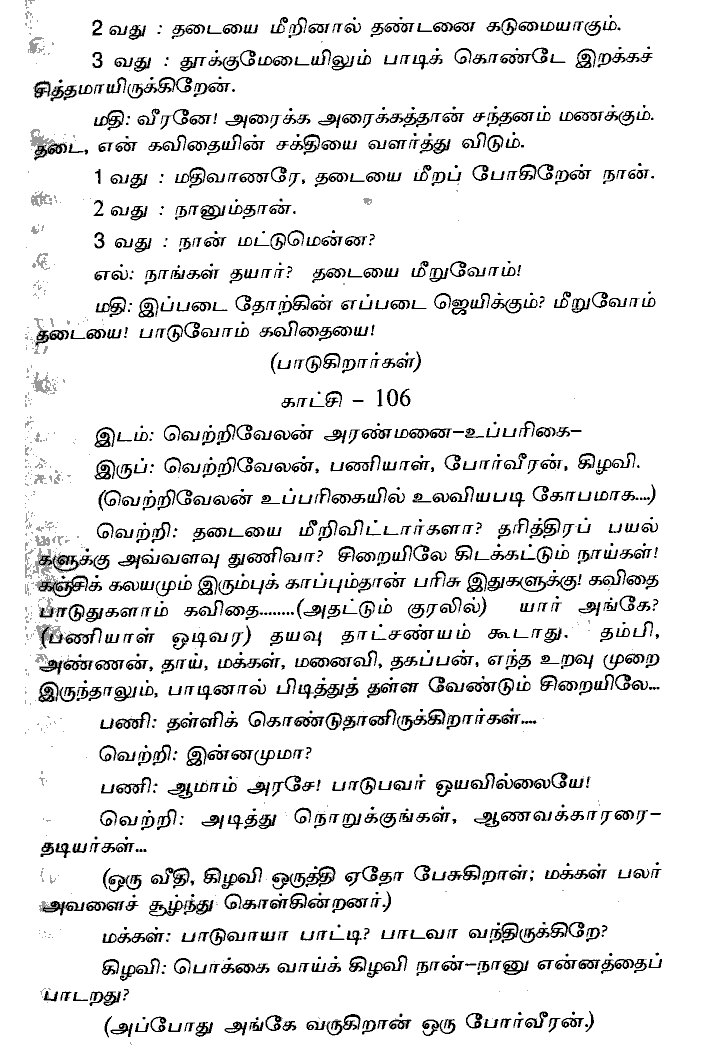 2 வது : தடையை மீறினால் தண்டனை கடுமையாகும்.
3 வது : தூக்குமேடையிலும் பாடிக் கொண்டே இறக்கச்
சித்தமாயிருக்கிறேன்.
மதி: வீரனே! அரைக்க அரைக்கத்தான் சந்தனம் மணக்கும்.
தடை, என் கவிதையின் சக்தியை வளர்த்து விடும்.
1 வது : மதிவாணரே, தடையை மீறப் போகிறேன் நான்.
2 வது : நானும்தான்.
3 வது : நான் மட்டுமென்ன?
எல்: நாங்கள் தயார்? தடையை மீறுவோம்!
மதி: இப்படை தோற்கின் எப்படை ஜெயிக்கும்? மீறுவோம்
தடையை! பாடுவோம் கவிதையை!
(பாடுகிறார்கள்)
காட்சி – 106
இடம்: வெற்றிவேலன் அரண்மனை–உப்பரிகை–
இருப்: வெற்றிவேலன், பணியாள், போர்வீரன், கிழவி.
(வெற்றிவேலன் உப்பரிகையில் உலவியபடி கோபமாக....)
வெற்றி: தடையை மீறிவிட்டார்களா? தரித்திரப் பயல்
களுக்கு அவ்வளவு துணிவா? சிறையிலே கிடக்கட்டும் நாய்கள்!
கஞ்சிக் கலயமும் இரும்புக் காப்பும்தான் பரிசு இதுகளுக்கு! கவிதை
பாடுதுகளாம் கவிதை........(அதட்டும் குரலில்) யார் அங்கே?
(பணியாள் ஓடிவர) தயவு தாட்சண்யம் கூடாது. தம்பி,
அண்ணன், தாய், மக்கள், மனைவி, தகப்பன், எந்த உறவு முறை
இருந்தாலும், பாடினால் பிடித்துத் தள்ள வேண்டும் சிறையிலே...
பணி: தள்ளிக் கொண்டுதானிருக்கிறார்கள்....
வெற்றி: இன்னமுமா?
பணி: ஆமாம் அரசே! பாடுபவர் ஓயவில்லையே!
வெற்றி: அடித்து நொறுக்குங்கள், ஆணவக்காரரை–
தடியர்கள்...
(ஒரு வீதி, கிழவி ஒருத்தி ஏதோ பேசுகிறாள்; மக்கள் பலர்
அவளைச் சூழ்ந்து கொள்கின்றனர்.)
மக்கள்: பாடுவாயா பாட்டி? பாடவா வந்திருக்கிறே?
கிழவி: பொக்கை வாய்க் கிழவி நான்–நானு என்னத்தைப்
பாடறது?
(அப்போது அங்கே வருகிறான் ஒரு போர்வீரன்.)